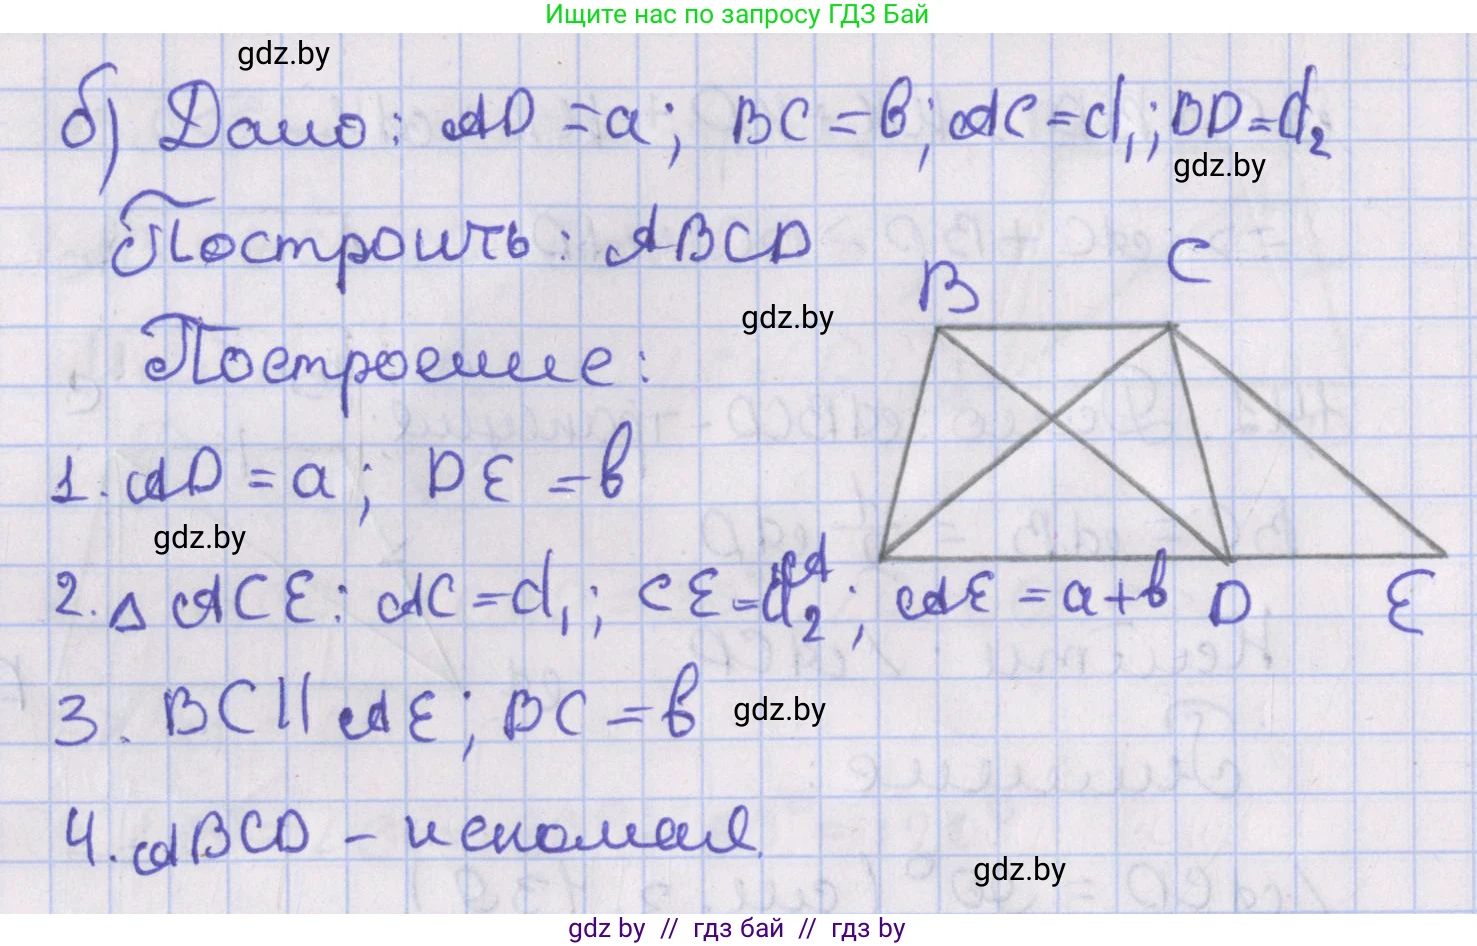 Ищите нас по запросу ГДЗ Бай
gdz.by
б) Дано: AD = a; BC = в; AC = d₁; BD = d₂
gdz.by
Построить: ABCD
B C
gdz.by
Построение:
1. AD = a; DE = в
gdz.by
A D E
2. △ ACE: AC = d₁; CE = d₂; AE = a + в
3. BC || AE; BC = в
gdz.by
4. ABCD – искомая.
gdz.by
gdz.by // гдз бай // гдз by